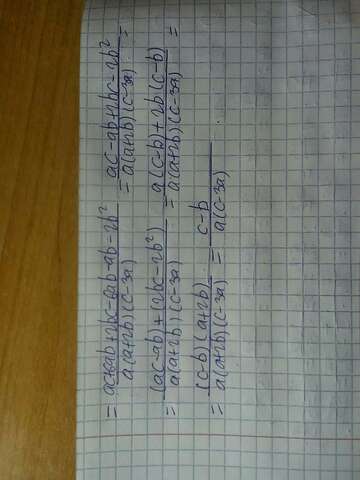 = \frac{ac+ab+2bc-ab-ab-2b²}{a(a+2b)(c-3a)} = \frac{ac-ab+2bc-2b²}{a(a+2b)(c-3a)} =
= \frac{(ac-ab)+(2bc-2b²)}{a(a+2b)(c-3a)} = \frac{a(c-b)+2b(c-b)}{a(a+2b)(c-3a)} =
= \frac{(c-b)(a+2b)}{a(a+2b)(c-3a)} = \frac{c-b}{a(c-3a)}.